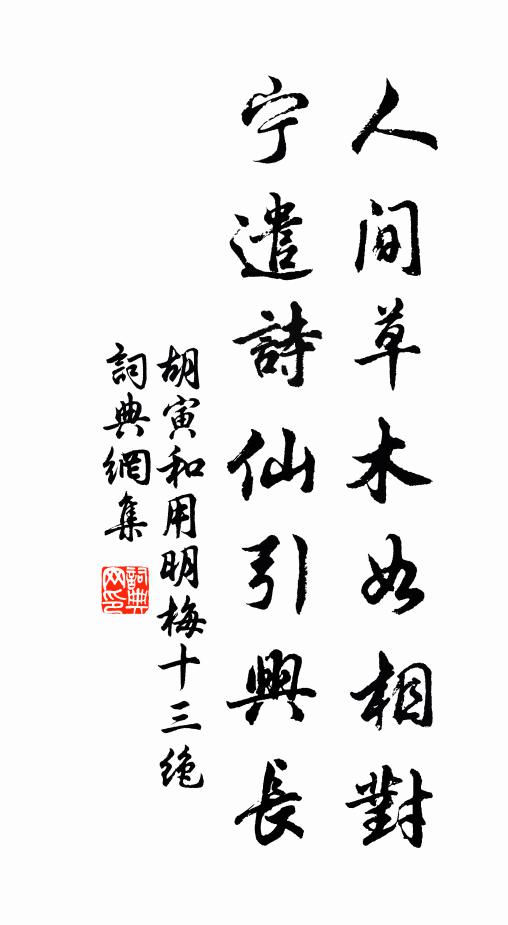 人間草木如相對
宁遣詩仙引興長
胡寅和用明梅十三绝
詞典網集
詞典网印